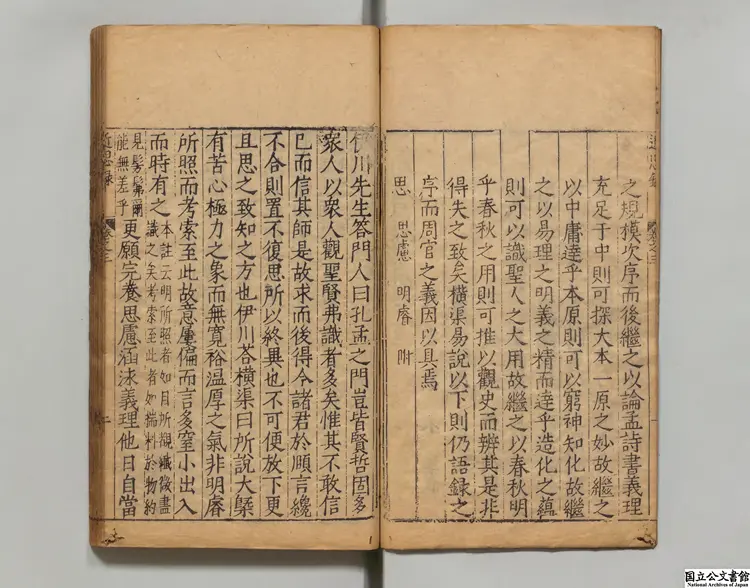 之規模次序而後繼之以論孟詩書義理
充足于中則可探大本一原之妙故繼之
以中庸達乎本原則可以窮神知化故繼
之以易理之明義之精而達乎造化之蘊
則可以識聖人之大用故繼之以春秋明
乎春秋之用則可推以觀史而辨其是非
得失之致矣橫渠易說以下則仍語錄之
序而周官之義因以具焉
思 思慮 明睿 附
伊川先生答門人曰孔孟之門豈皆賢哲固多
衆人以衆人觀聖賢弗識者多矣惟其不敢信
己而信其師是故求而後得今諸君於頤言纔
不合則置不復思所以終異也不可便放下更
且思之致知之方也伊川荅橫渠曰所說大槩
有苦心極力之象而無寬裕溫厚之氣非明睿
所照而考索至此故意屢偏而言多窒小出入
而時有之 本註云明所照者如目所覩纖微盡
識之矣考索至此者如揣料於物約
見髣髴爾
能無差乎 更願完養思慮涵泳義理他日自當
近思錄
卷之三
近思錄
卷之三
国立公文書館
National Archives of Japan